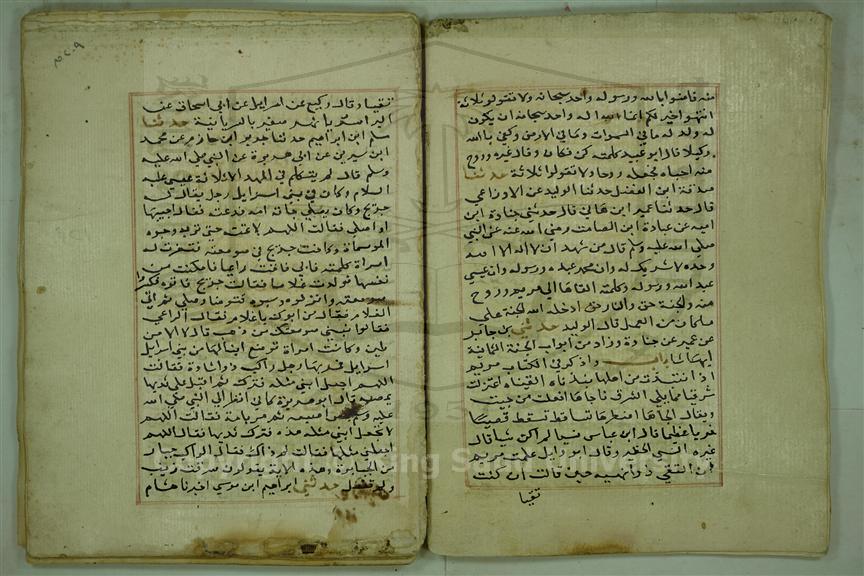 منه فامنوا بالله ورسوله واحد سبحانه ولا تقولوا ثلاثة
انتهوا خيرا لكم انما الله اله واحد سبحانه ان يكون
له ولد له ما في السموات وما في الارض وكفى بالله
وكيلا قال ابو عبيد كلمته كن فكان وقال غيره وروح
منه احياه فجعله روحا ولا تقولوا ثلاثة حدثنا
صدقة ابن الفضل حدثنا الوليد عن الاوزاعي
قال حدثنا عمير ابن هاني قال حدثني جنادة ابن
اميه عن عبادة ابن الصامت رضى الله عنه عن النبي
صلى الله عليه وسلم قال من شهد ان لا اله الا الله
وحده لا شريك له وان محمد عبده ورسوله وان عيسى
عبد الله ورسوله وكلمته القاها الى مريم وروح
منه والجنة حق والنار حق ادخله الله الجنة على
ما كان من العمل قال الوليد حدثني بن جابر
عن عمير عن جنادة وزاد من ابواب الجنة الثمانية
ايها شاء باب واذكر في الكتاب مريم
اذ انتبذت من اهلها نبذناه القيناه اعتزلت
شرقيا مما يلي الشرق فاجاها افعلت من جيت
ويقال الجاها اضطرها تساقط تسقط قصيا
قاصيا فريا عظيما قال ابن عباس نسيا لم اكن شيا قال
غيره النسي الحقير وقال ابو وايل علمت مريم
ان التقي ذو نهيه حين قالت ان كنت
تقيا
تقيا وقال وكيع عن اسرايل عن ابي اسحاق عن
البراء سريا نهر صغير بالسريانية حدثنا
مسلم ابن ابراهيم حدثنا جرير ابن حازم عن محمد
ابن سيرين عن ابي هريرة عن النبي صلى الله عليه
وسلم قال لم يتكلم في المهد الا ثلاثة عيسى عليه
السلام وكان في بني اسرايل رجل يقال له
جريج وكان يصلي جاته امه فدعته فقال اجيبها
او اصلي فقالت اللهم لا تمته حتى تريه وجوه
المومسات وكانت جريج في صومعته فتعرضت له
امراة وكلمته فابى فاتت راعيا فامكنته من
نفسها فولدت غلاما فقالت جريج فاتوه فكسروا
صومعته وانزلوه وسبوه فتوضا وصلى ثم اتى
الغلام فقال من ابوك يا غلام فقال الراعي
فقالوا نبني صومعتك من ذهب قال لا الا من
طين وكانت امراة ترضع ابنا لها من بني اسرايل
فمر بها رجل راكب ذو شارة فقالت
اللهم اجعل ابني مثله فترك ثديها ثم اقبل على ثديها
يمصه قال ابو هريرة كاني انظر الى النبي صلى الله
عليه وسلم يمص اصبعه ثم مر بامة فقالت اللهم
لا تجعل ابني مثل هذه فترك ثديها فقال اللهم
اجعلني مثلها فقالت لم ذاك فقال الراكب جبار
من الجبابرة وهذه الامة يقولون سرقت زنيت
ولم تفعل حدثني ابراهيم ابن موسى اخبرنا هشام